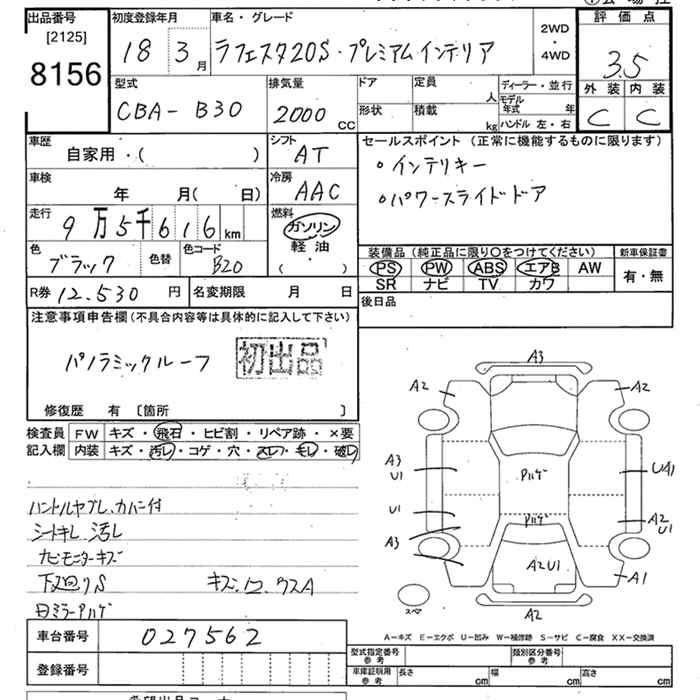 出品番号 初度登録年月 車名・グレード 評価点
[2125]
8156
18 3月 ラフェスタ20S・プレミアムインテリア
2WD
・
4WD
3.5
型式 排気量 ドア 定員 人 ディーラー・並行 外装 内装
CBA-B30 2000cc
形状 積載 kg モデル年式 年
ハンドル 左・右
C C
車歴 シフト セールスポイント (正常に機能するものに限ります)
自家用・( ) AT
・インテリキー
車検 冷房
年 月( 日) AAC
・パワースライドドア
走行 燃料
9万5千616km ガソリン
軽油
( ・ )
色 色替 色コード
ブラック B20
装備品 (純正品に限り○をつけてください) 新車保証書
PS PW ABS エアB AW 有・無
SR ナビ TV カワ
R券 12.530円 名変期限 月 日
後日品
注意事項申告欄(不具合内容等は具体的に記入して下さい)
パノラミックルーフ 初出品
修復歴 有 〔箇所 〕
検査員 FW キズ・飛石・ヒビ割・リペア跡・×要
記入欄 内装 キズ・汚レ・コゲ・穴・スレ・毛レ・破レ
ハンドルヤブレ、カバー付
シートキレ 汚レ
ナビモニターキズ
下廻りS
A3
A2 A2
A3
U1
パルゲ
U4 1
U1
パルゲ
A2
U1
A3
A2U1
A1
スペア
A2
A-キズ E-エクボ U-凹み W-補修跡 S-サビ C-腐食 XX-交換済
車台番号 027562
型式指定番号
参考
類別区分番号
参考
登録番号
車庫証明用
参考
長さ cm 幅 cm 高さ cm